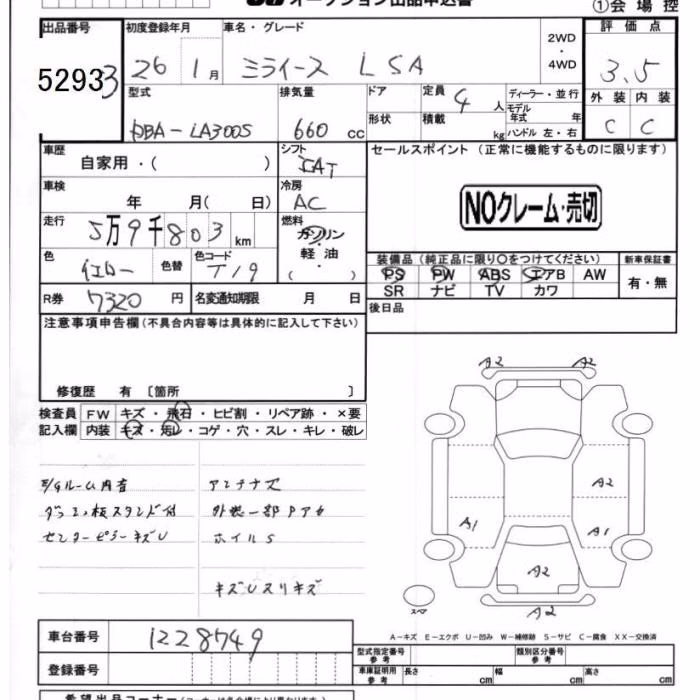 オークション出品申込書
①会場控
出品番号 初度登録年月 車名・グレード 2WD ・ 4WD 評価点
52933 26 1月 ミライース LSA 3.5
型式 排気量 ドア 定員 4人 ディーラー・並行 外装 内装
形状 積載 kg モデル年式 年 ハンドル 左・右
DBA-LA300S 660cc C C
車歴 シフト セールスポイント (正常に機能するものに限ります)
自家用・( )
車検 冷房
年 月( 日) AC
NOクレーム・売切
走行 燃料
5万9千803km ガソリン・軽油・( )
色 色替 色コード
イエロー T19
装備品 (純正品に限り〇をつけてください) 新車保証書
PS PW ABS エアB AW 有・無
SR ナビ TV カワ
R券 7320円 名変通知期限 月 日 後日品
注意事項申告欄(不具合内容等は具体的に記入して下さい)
修復歴 有 〔箇所 〕
検査員 FW キズ・飛石・ヒビ割・リペア跡・×要
記入欄 内装 キズ・汚レ・コゲ・穴・スレ・キレ・破レ
E/Gルーム内音 アンテナ欠
スタンド付 外装一部Pアセ
センターピラーキズU ホイルS
キズUスリキズ
A2 A2
A2
A1 A1
A2
スペア A2
A-キズ E-エクボ U-凹み W-補修跡 S-サビ C-腐食 XX-交換済
車台番号 1228749
型式指定番号 参考 類別区分番号 参考
登録番号
車庫証明用 参考 長さ cm 幅 cm 高さ cm
希望出品コーナー